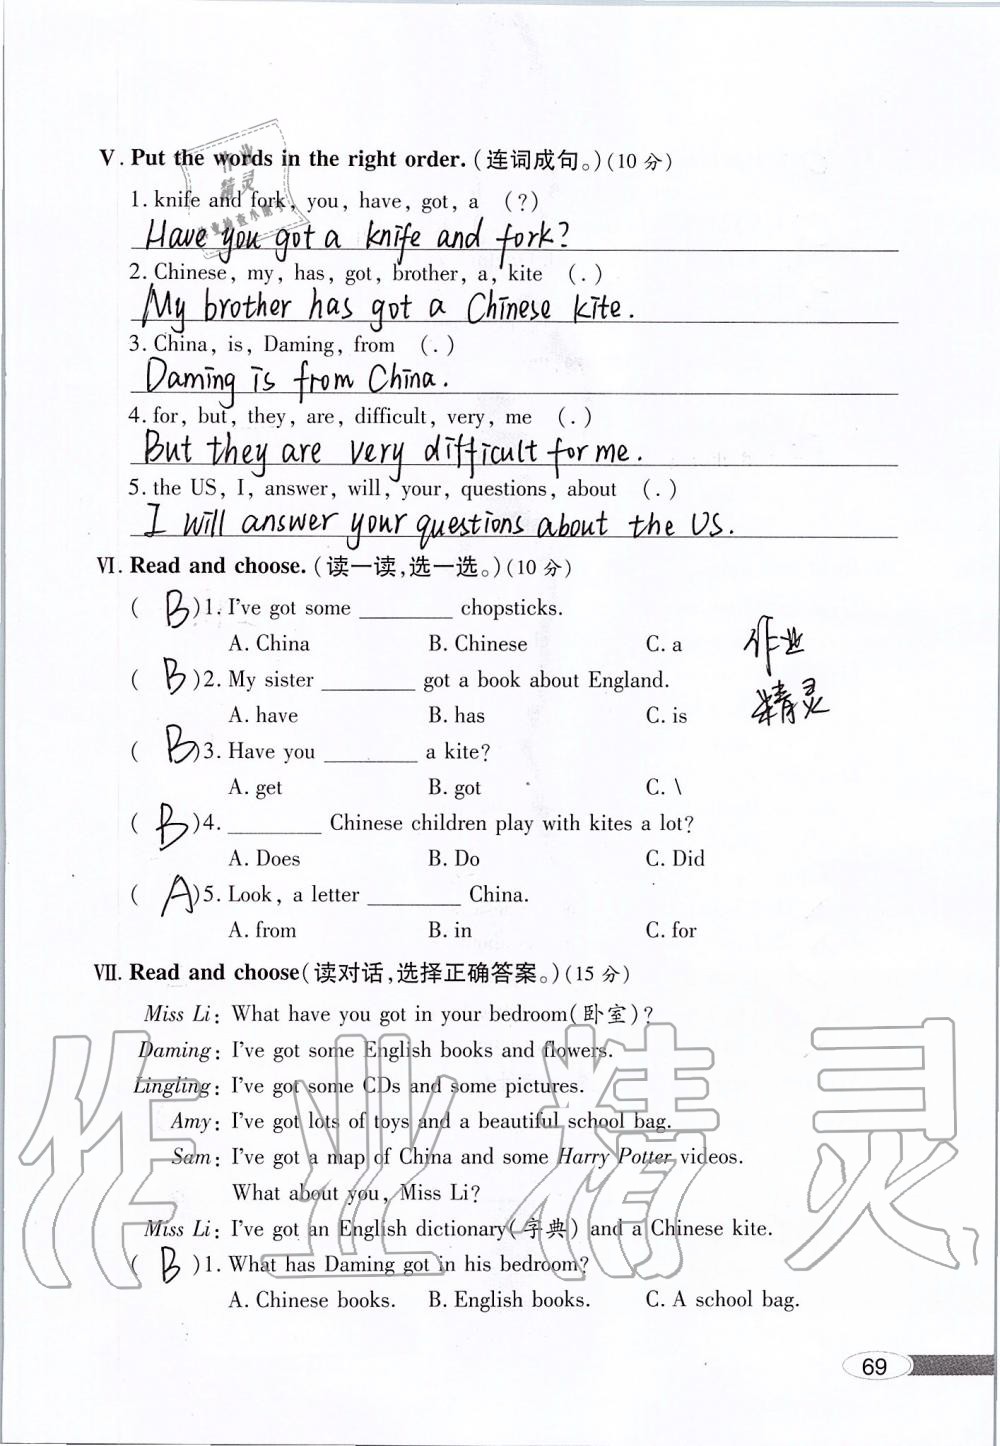 Ⅴ. Put the words in the right order.(连词成句。)(10 分)
1. knife and fork, you, have, got, a (?)
Have you got a knife and fork?
2. Chinese, my, has, got, brother, a, kite (.)
My brother has got a Chinese kite.
3. China, is, Daming, from (.)
Daming is from China.
4. for, but, they, are, difficult, very, me (.)
But they are very difficult for me.
5. the US, I, answer, will, your, questions, about (.)
I will answer your questions about the US.
Ⅵ. Read and choose.(读一读,选一选。)(10 分)
( B )1. I've got some ________ chopsticks.
A. China B. Chinese C. a
作业
精灵
( B )2. My sister ________ got a book about England.
A. have B. has C. is
( B )3. Have you ________ a kite?
A. get B. got C. \
( B )4. ________ Chinese children play with kites a lot?
A. Does B. Do C. Did
( A )5. Look, a letter ________ China.
A. from B. in C. for
Ⅶ. Read and choose(读对话,选择正确答案。)(15 分)
Miss Li: What have you got in your bedroom(卧室)?
Daming: I've got some English books and flowers.
Lingling: I've got some CDs and some pictures.
Amy: I've got lots of toys and a beautiful school bag.
Sam: I've got a map of China and some Harry Potter videos.
What about you, Miss Li?
Miss Li: I've got an English dictionary(字典) and a Chinese kite.
( B )1. What has Daming got in his bedroom?
A. Chinese books. B. English books. C. A school bag.
69
作业精灵
作业
精灵